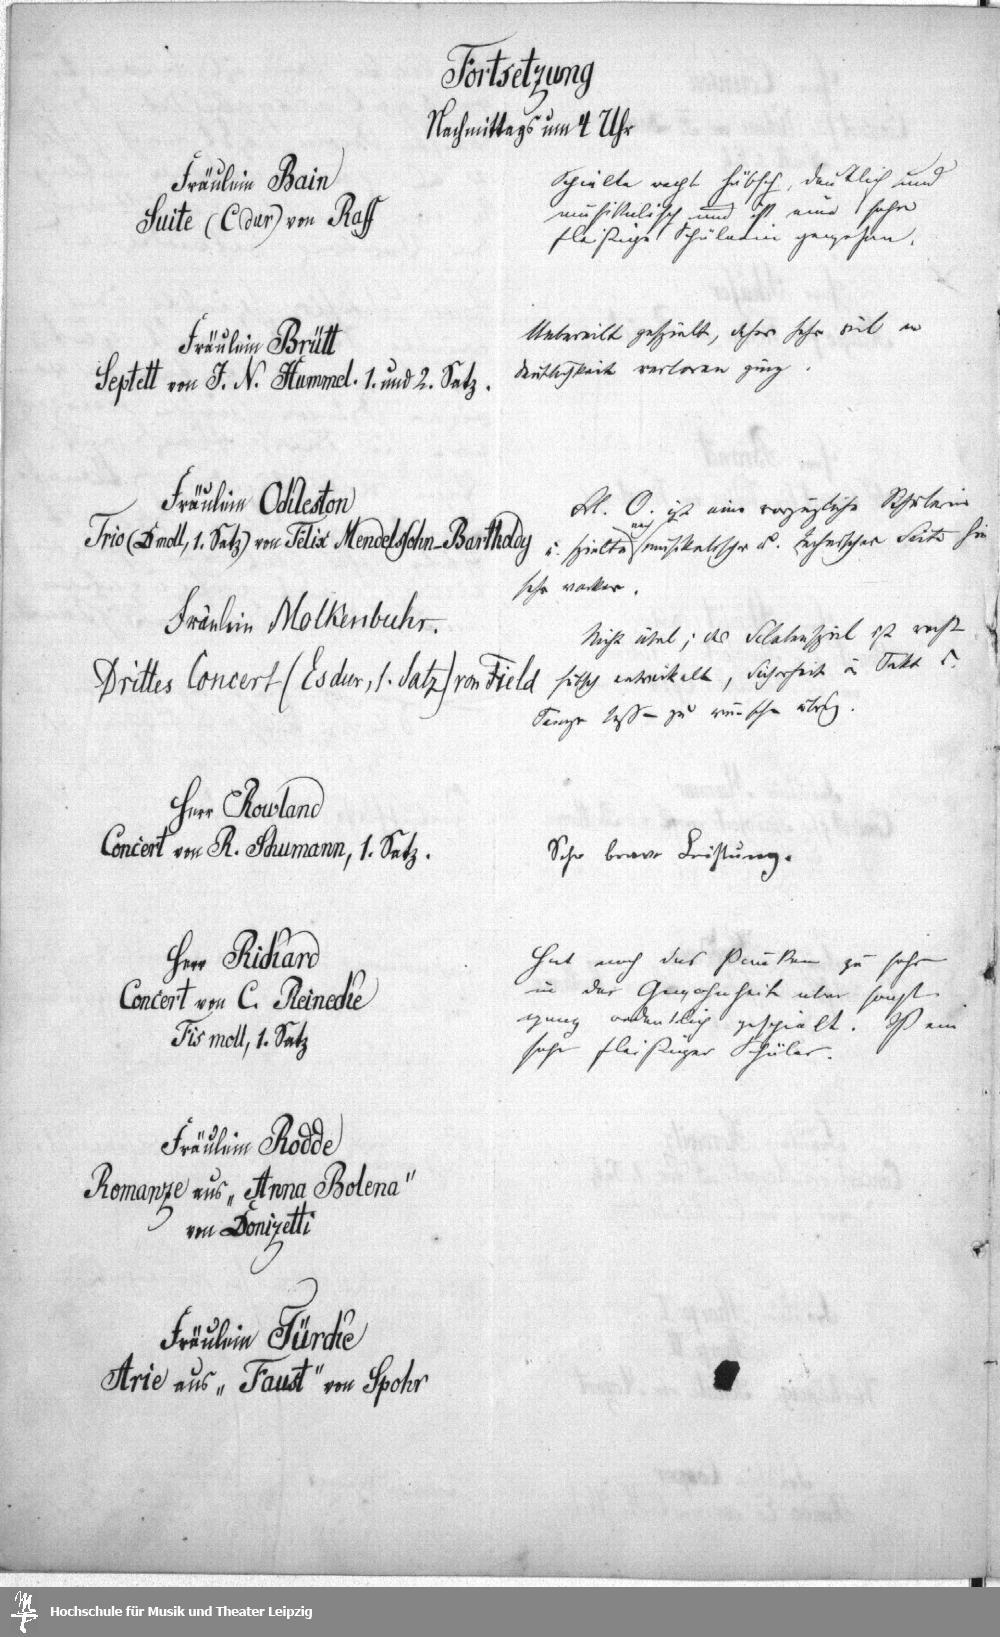 Fortsetzung
Nachmittags um 4 Uhr
Fräulein Bain
Suite (C dur) von Raff
Spielte recht hübsch, deutlich und
musikalisch und ist eine sehr
fleißige Schülerin gewesen.
Fräulein Brütt
Septett von J. N. Hummel. 1. und 2. Satz.
Uebereilt gespielt, daher sehr viel an
Deutlichkeit verloren ging.
Fräulein Odileston
Trio (D moll, 1. Satz) von Felix Mendelssohn-Bartholdy
Frl. O. ist eine vorzügliche Schülerin
u. spielte nach musikalischer u. technischer Seite hin
sehr wacker.
Fräulein Molkenbuhr.
Drittes Concert (Es dur, 1. Satz) von Field
Nicht übel; das Scalenspiel ist recht
hübsch entwickelt, Sicherheit im Takt u.
lassen zu wünschen übrig.
Herr Rowland
Concert von R. Schumann, 1. Satz.
Sehr brave Leistung.
Herr Richard
Concert von C. Reinecke
Fis moll, 1. Satz
Hat noch das Pauken zu sehr
in der Gewohnheit aber sonst
ganz ordentlich gespielt. Ist ein
sehr fleißiger Schüler.
Fräulein Rodde
Romanze aus „Anna Bolena"
von Donizetti
Fräulein Türcke
Arie aus „Faust" von Spohr
Hochschule für Musik und Theater Leipzig